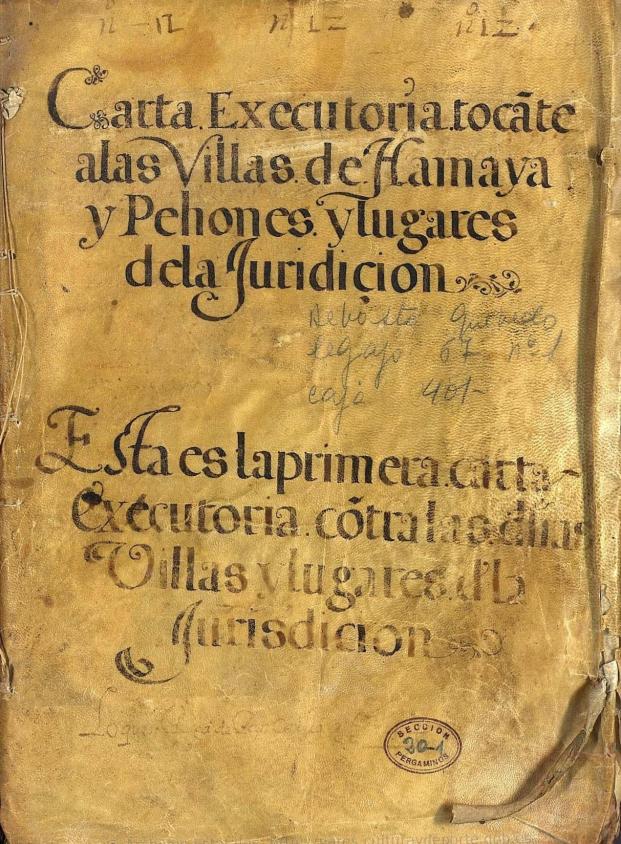 nº 12 nº 12 nº 12
Carta. Executoria. tocãte
alas Villas. de Hamaya
y Pehones. y lugares
dela Juridicion
legajo 67 nº 1
caja 401-
Esta es laprimera. carta
executoria. cõtra las. dhas
Villas y lugares. dla
Jurisdicion
SECCION
30-1
PERGAMINOS